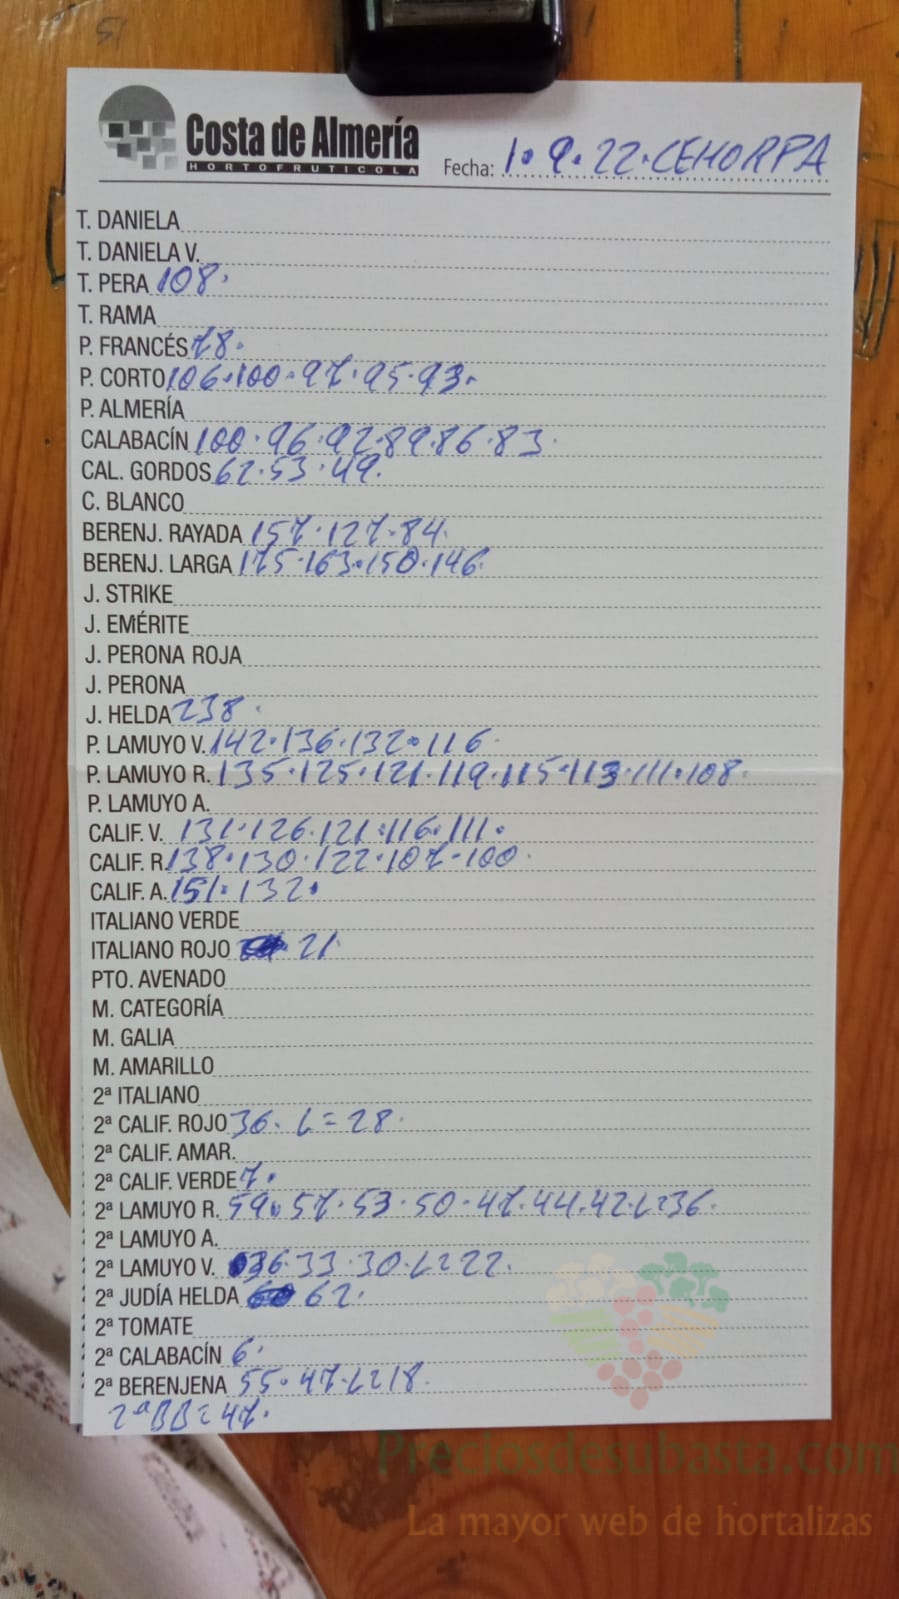 Costa de Almería
HORTOFRUTICOLA
Fecha: 1.9.22.CEHORPA
T. DANIELA
T. DANIELA V.
T. PERA 108.
T. RAMA
P. FRANCÉS 78.
P. CORTO 106.100.97.95.93.
P. ALMERÍA
CALABACÍN 100.96.92.89.86.83.
CAL. GORDOS 62.53.49.
C. BLANCO
BERENJ. RAYADA 157.127.84.
BERENJ. LARGA 175.163.150.146.
J. STRIKE
J. EMÉRITE
J. PERONA ROJA
J. PERONA
J. HELDA 238.
P. LAMUYO V. 142.136.132.116.
P. LAMUYO R. 135.125.121.119.115.113.111.108.
P. LAMUYO A.
CALIF. V. 131.126.121.116.111.
CALIF. R. 138.130.122.107.100.
CALIF. A. 151.132.
ITALIANO VERDE
ITALIANO ROJO 21.
PTO. AVENADO
M. CATEGORÍA
M. GALIA
M. AMARILLO
2ª ITALIANO
2ª CALIF. ROJO 36. L=28.
2ª CALIF. AMAR.
2ª CALIF. VERDE 7.
2ª LAMUYO R. 59.57.53.50.47.44.42.L=36.
2ª LAMUYO A.
2ª LAMUYO V. 36.33.30.L=22.
2ª JUDÍA HELDA 62.
2ª TOMATE
2ª CALABACÍN 6.
2ª BERENJENA 55.47.L=18.
2ªBB=47.
Preciosdesubasta.com
La mayor web de hortalizas